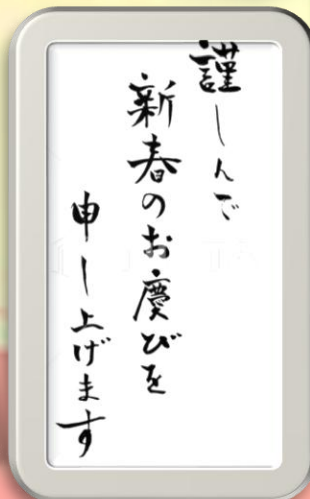 謹しんで
新春のお慶びを
申し上げます